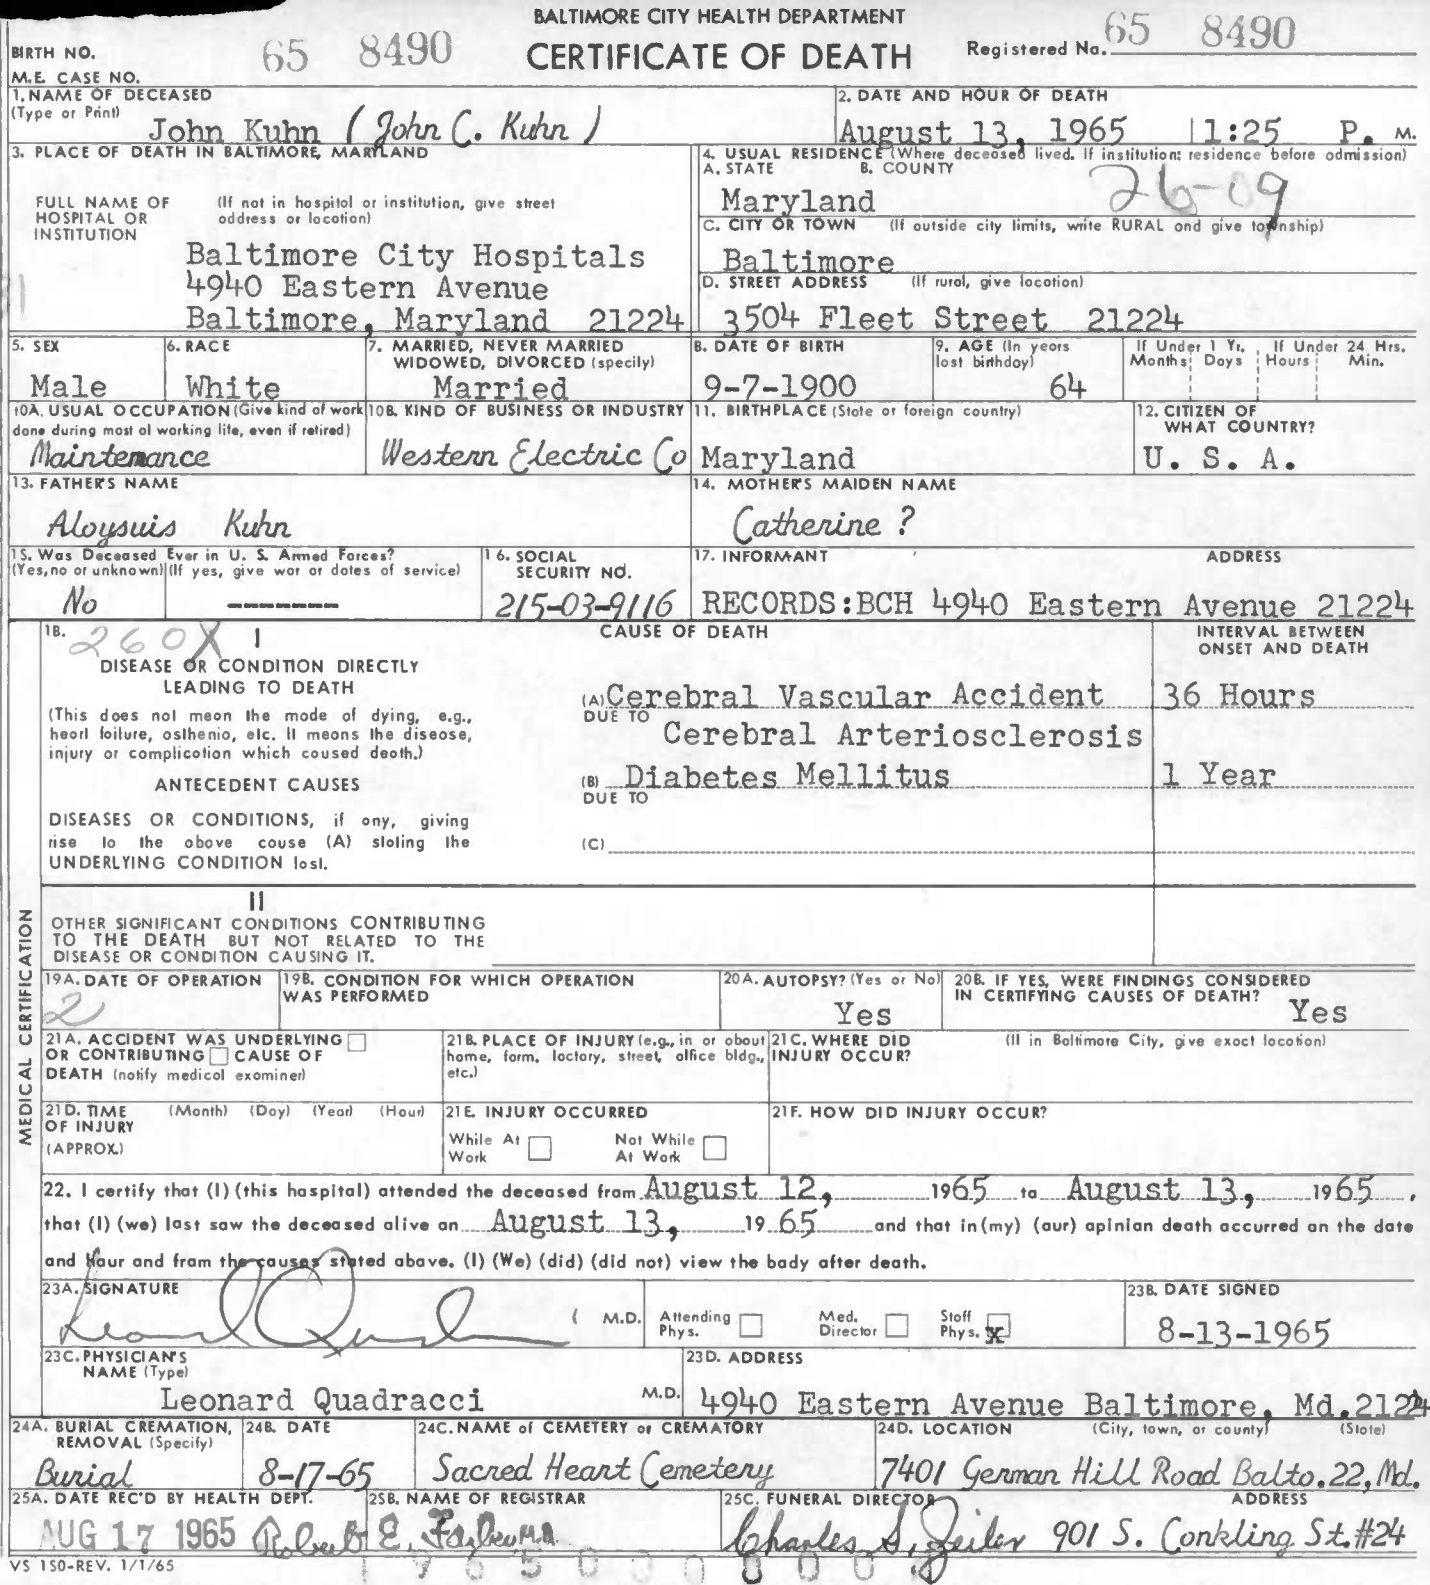 BALTIMORE CITY HEALTH DEPARTMENT
CERTIFICATE OF DEATH
BIRTH NO. 65 8490
Registered No. 65 8490
M.E. CASE NO.
1. NAME OF DECEASED
(Type or Print)
John Kuhn (John C. Kuhn)
2. DATE AND HOUR OF DEATH
August 13, 1965 1:25 P. M.
3. PLACE OF DEATH IN BALTIMORE, MARYLAND
FULL NAME OF HOSPITAL OR INSTITUTION
(If not in hospital or institution, give street address or location)
Baltimore City Hospitals
4940 Eastern Avenue
Baltimore, Maryland 21224
4. USUAL RESIDENCE (Where deceased lived. If institution: residence before admission)
A. STATE B. COUNTY
Maryland 26-09
C. CITY OR TOWN (If outside city limits, write RURAL and give township)
Baltimore
D. STREET ADDRESS (If rural, give location)
3504 Fleet Street 21224
5. SEX
Male
6. RACE
White
7. MARRIED, NEVER MARRIED
WIDOWED, DIVORCED (specify)
Married
8. DATE OF BIRTH
9-7-1900
9. AGE (In years
last birthday)
64
If Under 1 Yr. If Under 24 Hrs.
Months Days Hours Min.
10A. USUAL OCCUPATION (Give kind of work
done during most of working life, even if retired)
Maintenance
10B. KIND OF BUSINESS OR INDUSTRY
Western Electric Co
11. BIRTHPLACE (State or foreign country)
Maryland
12. CITIZEN OF
WHAT COUNTRY?
U. S. A.
13. FATHER'S NAME
Aloysuis Kuhn
14. MOTHER'S MAIDEN NAME
Catherine ?
15. Was Deceased Ever in U. S. Armed Forces?
(Yes, no or unknown) (If yes, give war or dates of service)
No -------
16. SOCIAL
SECURITY NO.
215-03-9116
17. INFORMANT ADDRESS
RECORDS:BCH 4940 Eastern Avenue 21224
MEDICAL CERTIFICATION
18. 260X I
DISEASE OR CONDITION DIRECTLY
LEADING TO DEATH
(This does not mean the mode of dying, e.g.,
heart failure, asthenia, etc. It means the disease,
injury or complication which caused death.)
ANTECEDENT CAUSES
DISEASES OR CONDITIONS, if any, giving
rise to the above cause (A) stating the
UNDERLYING CONDITION last.
CAUSE OF DEATH
INTERVAL BETWEEN
ONSET AND DEATH
(A) Cerebral Vascular Accident 36 Hours
DUE TO
Cerebral Arteriosclerosis
(B) Diabetes Mellitus 1 Year
DUE TO
(C)
II
OTHER SIGNIFICANT CONDITIONS CONTRIBUTING
TO THE DEATH BUT NOT RELATED TO THE
DISEASE OR CONDITION CAUSING IT.
19A. DATE OF OPERATION
2
19B. CONDITION FOR WHICH OPERATION
WAS PERFORMED
20A. AUTOPSY? (Yes or No)
Yes
20B. IF YES, WERE FINDINGS CONSIDERED
IN CERTIFYING CAUSES OF DEATH? Yes
21A. ACCIDENT WAS UNDERLYING
OR CONTRIBUTING CAUSE OF
DEATH (notify medical examiner)
21B. PLACE OF INJURY (e.g., in or about
home, farm, factory, street, office bldg.,
etc.)
21C. WHERE DID (If in Baltimore City, give exact location)
INJURY OCCUR?
21D. TIME (Month) (Day) (Year) (Hour)
OF INJURY
(APPROX.)
21E. INJURY OCCURRED
While At Work Not While At Work
21F. HOW DID INJURY OCCUR?
22. I certify that (I) (this hospital) attended the deceased from August 12, 1965 to August 13, 1965,
that (I) (we) last saw the deceased alive on August 13, 1965 and that in (my) (our) opinion death occurred on the date
and Hour and from the causes stated above. (I) (We) (did) (did not) view the body after death.
23A. SIGNATURE
Leonard Quadracci M.D.
Attending Phys. Med. Director Staff Phys. X
23B. DATE SIGNED
8-13-1965
23C. PHYSICIAN'S
NAME (Type)
Leonard Quadracci M.D.
23D. ADDRESS
4940 Eastern Avenue Baltimore, Md. 21224
24A. BURIAL CREMATION,
REMOVAL (Specify)
Burial
24B. DATE
8-17-65
24C. NAME of CEMETERY or CREMATORY
Sacred Heart Cemetery
24D. LOCATION (City, town, or county) (State)
7401 German Hill Road Balto. 22, Md.
25A. DATE REC'D BY HEALTH DEPT.
AUG 17 1965
25B. NAME OF REGISTRAR
Robert E. Farber M.D.
25C. FUNERAL DIRECTOR ADDRESS
Charles S. Zeiler 901 S. Conkling St. #24
VS 150-REV. 1/1/65